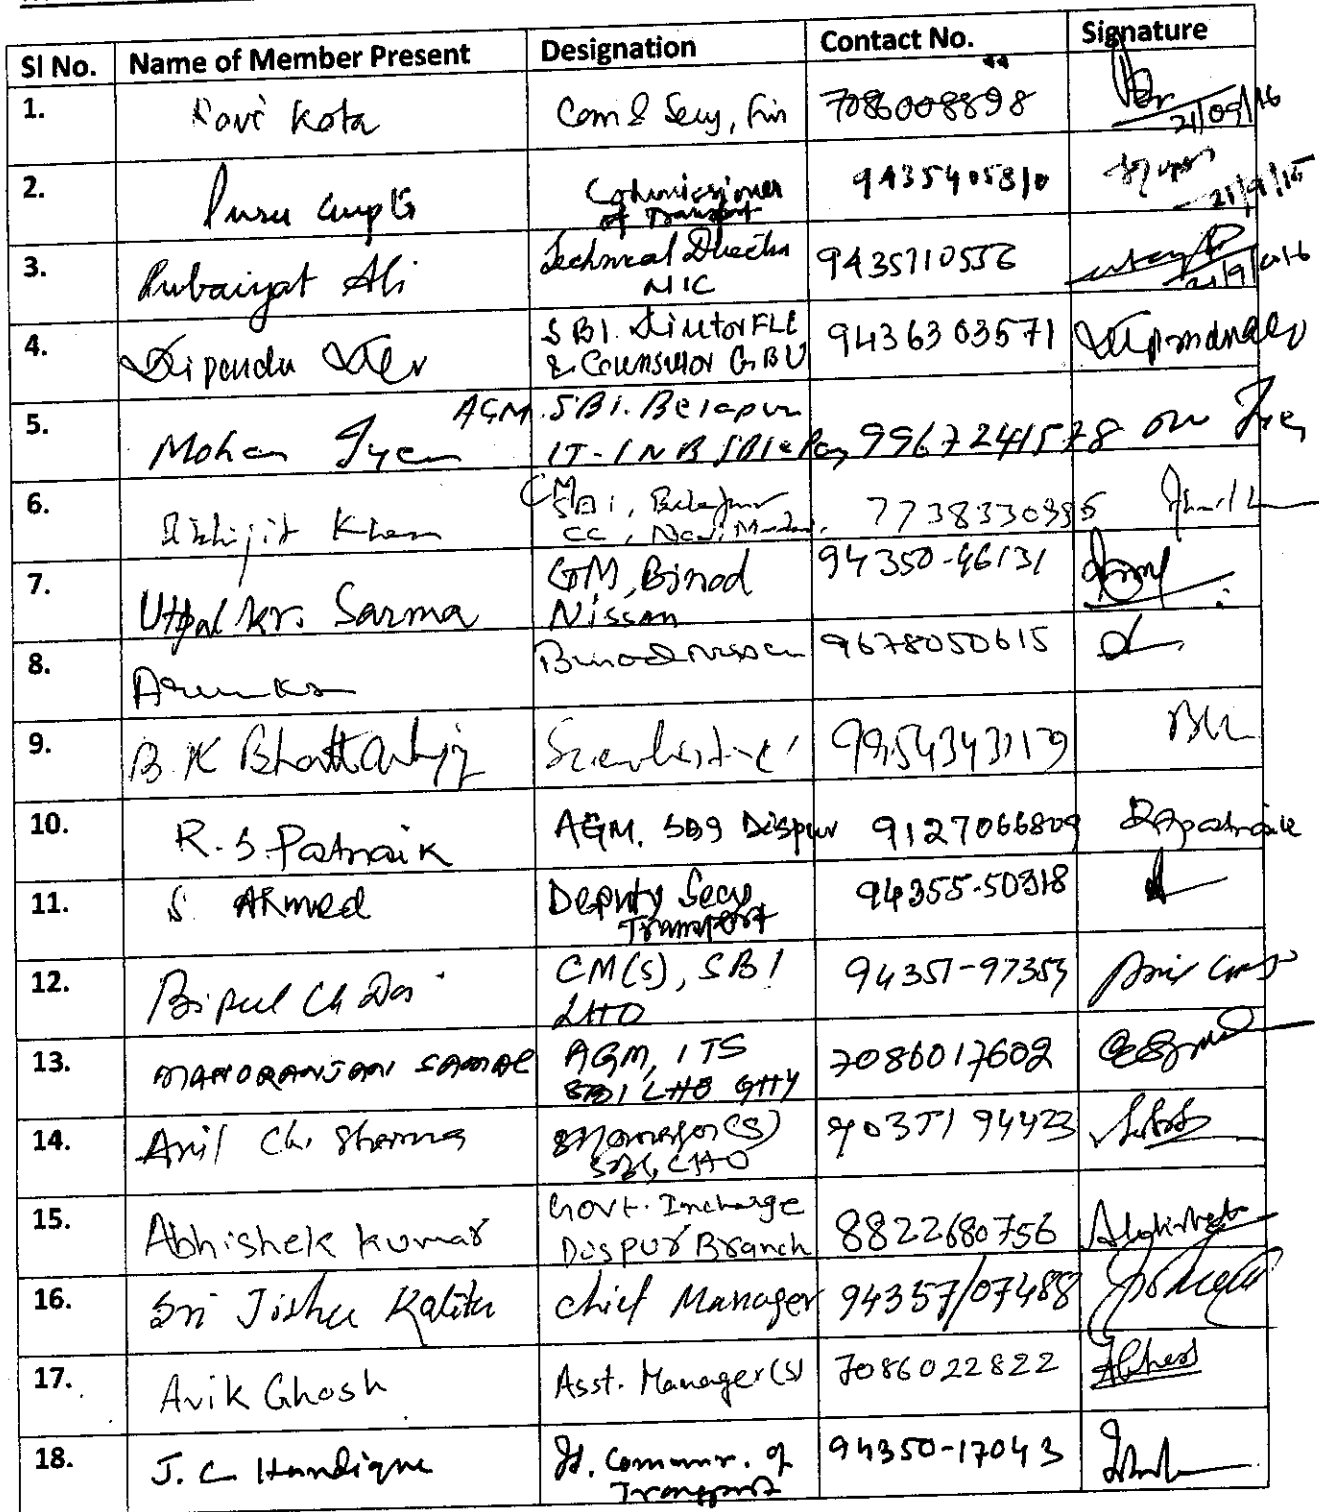 Sl No. Name of Member Present Designation Contact No. Signature
1. Ravi Kota Com & Secy, Fin 7086008898 21/09/16
2. Puru Gupta Commissioner of Transport 9435405810 21/9/15
3. Rubaiyat Ali Technical Director NIC 9435710556 21/9/2016
4. Dipendu Dev SBI. Director FLC & Counsellor GBU 9436303571
5. Mohan Iyer AGM. SBI. Belapur IT-INB SBIePay 9967241578
6. Abhijit Khan CM SBI, Belapur CC, Navi Mumbai. 7738330395
7. Utpal Kr. Sarma GM, Binod Nissan 94350-46131
8. Arun Kr Binod Nissan 9678050615
9. B. K Bhattacharjz Scientist-'C' 9954343139
10. R. S. Patnaik AGM. SBI Dispur 9127066809 RSpatnaik
11. S. Ahmed Deputy Secy Transport 94355-50318
12. Bipul Ch Das CM(S), SBI LHO 94357-97353
13. MANORANJAN SAMAL AGM, ITS SBI LHO GHY 7086017602
14. Anil Ch. Sharma Manager(S) SBI, LHO 90357 94423
15. Abhishek Kumar Govt. Incharge Dispur Branch 8822680756
16. Sri Jishu Kalita Chief Manager 94357/07488
17. Avik Ghosh Asst. Manager(S) 7086022822 AGhosh
18. J. C Handique Jt. Commnr. of Transport 94350-17043